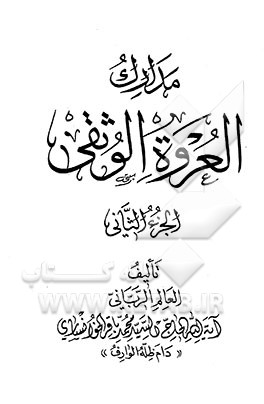 مَدَارِكُ
العُروَةِ الوُثقى
الجزءُ الثّانى
تأليفُ
العالم الرّبّانى
آية الله الحاج السيد محمد باقر الموسوى
«دام ظله الوارف»